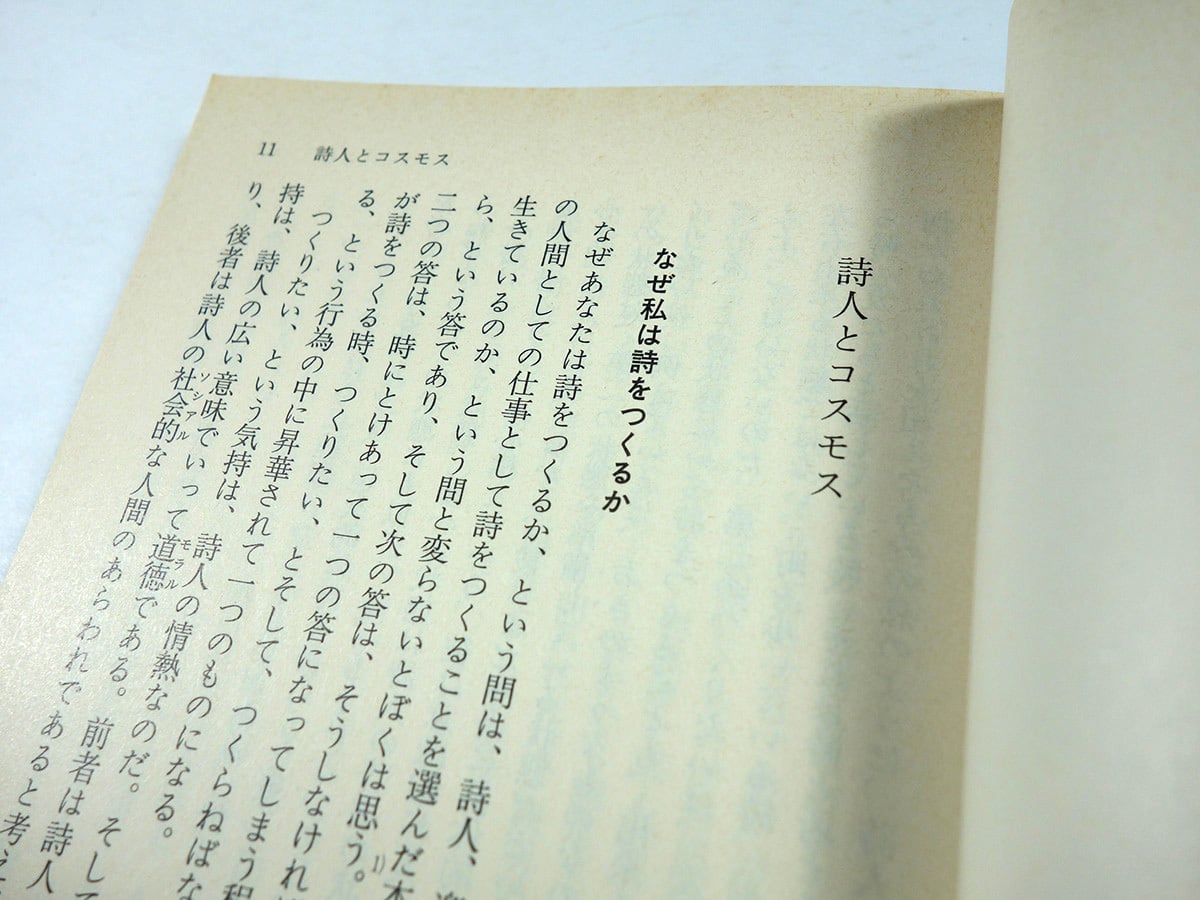 11 詩人とコスモス
詩人とコスモス
なぜ私は詩をつくるか
なぜあなたは詩をつくるか、という問は、詩人、
の人間としての仕事として詩をつくることを選んだ
生きているのか、という問と変らないとぼくは思う。1)
ら、という答であり、そして次の答は、そうしなけれ
二つの答は、時にとけあって一つの答になってしまう程
が詩をつくる時、つくりたい、とそして、つくらねばな
る、という行為の中に昇華されて一つのものになる。
つくりたい、という気持は、詩人の情熱なのだ。そして
持は、詩人の広い意味でいって道徳モラルである。前者は詩人
り、後者は詩人の社会的ソシアルな人間のあらわれであると考え